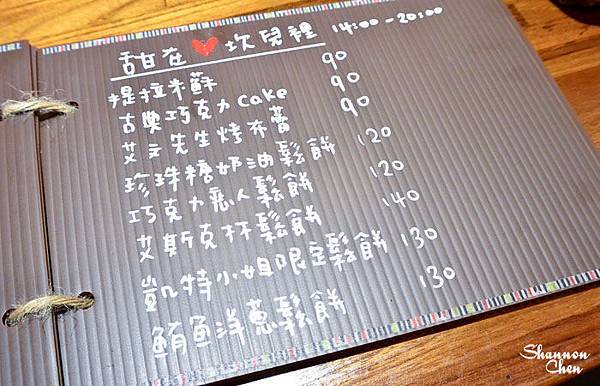 甜在♥坎兒裡 14:00-20:00
提拉米酥 90
古典巧克力Cake 90
艾文先生烤布蕾 90
珍珠糖奶油鬆餅 120
巧克力戀人鬆餅 120
艾斯克杯鬆餅 140
凱特小姐限定鬆餅 130
鮪魚洋蔥鬆餅 130
Shannon
Chen